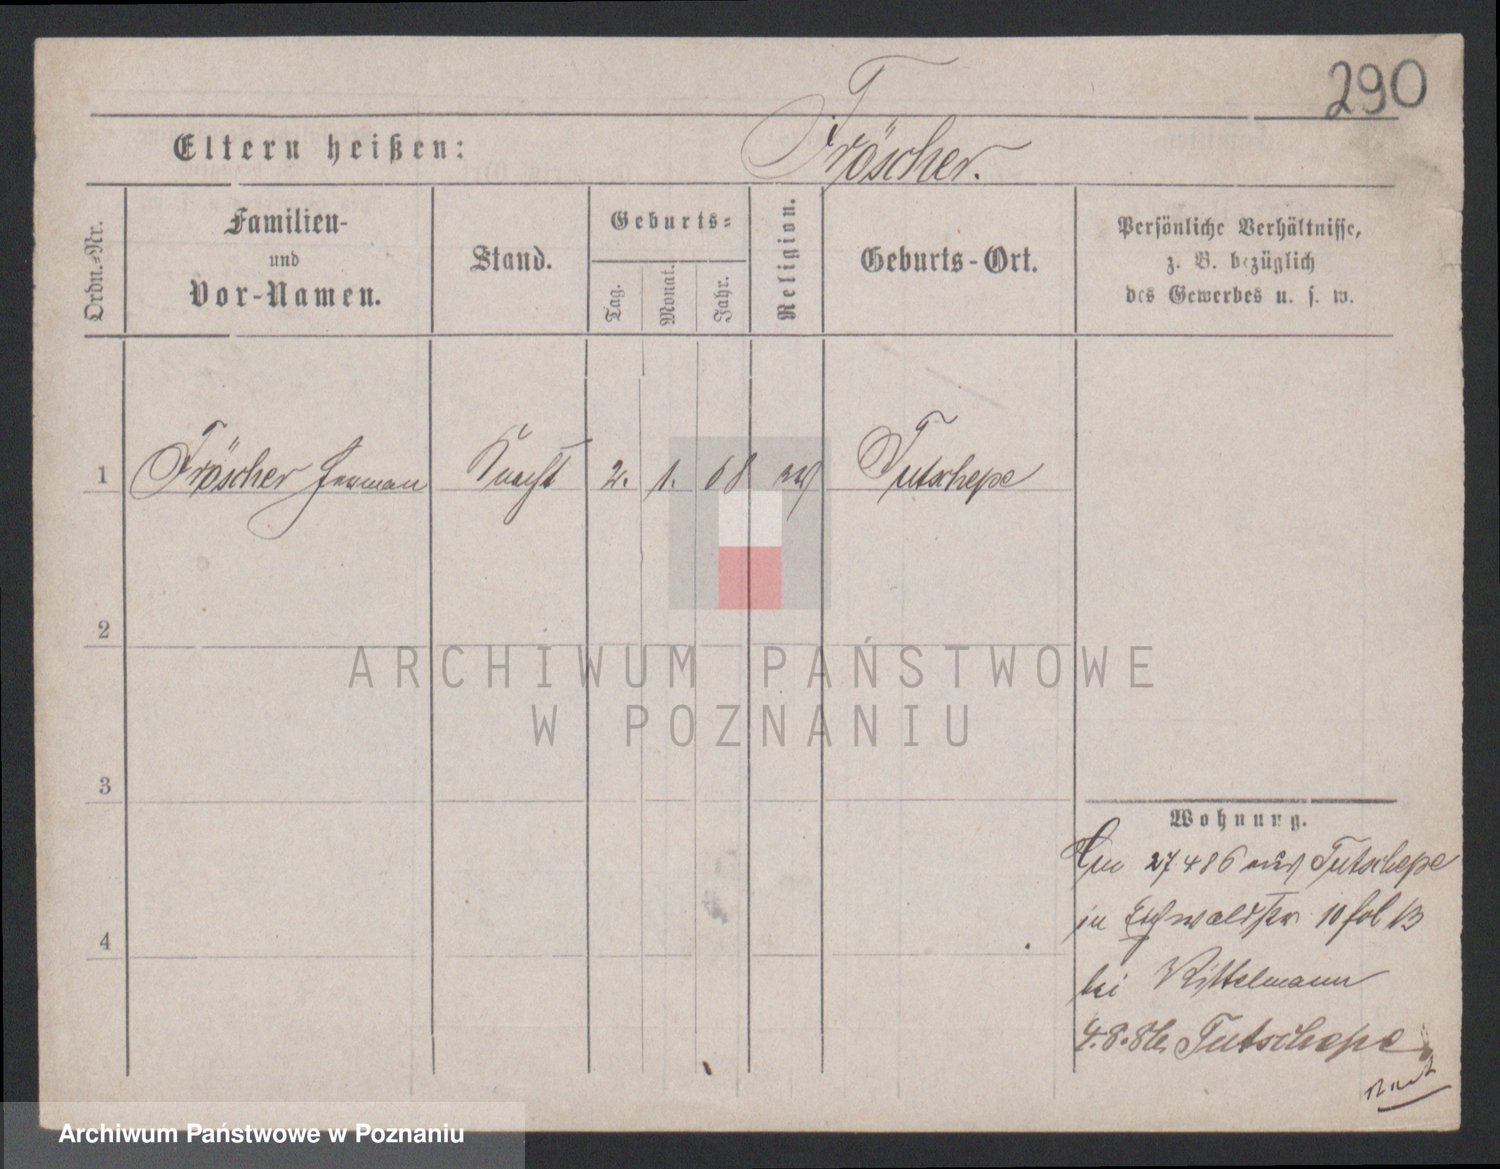 290
Eltern heißen:
Fröscher.
Ordn.-Nr.
Familien-
und
Vor-Namen.
Stand.
Geburts-
Tag.
Monat.
Jahr.
Religion.
Geburts-Ort.
Persönliche Verhältnisse,
z. B. bezüglich
des Gewerbes u. s. w.
1 Fröscher Herman Knecht 2. 1. 68 Tutschepe
2
ARCHIWUM PAŃSTWOWE
W POZNANIU
3
Wohnung.
27 4 86 aus Tutschepe
in Eichwaldstr 10 fol 13
bei Kittelmann
4
4.8.86. Tutschepe
Archiwum Państwowe w Poznaniu